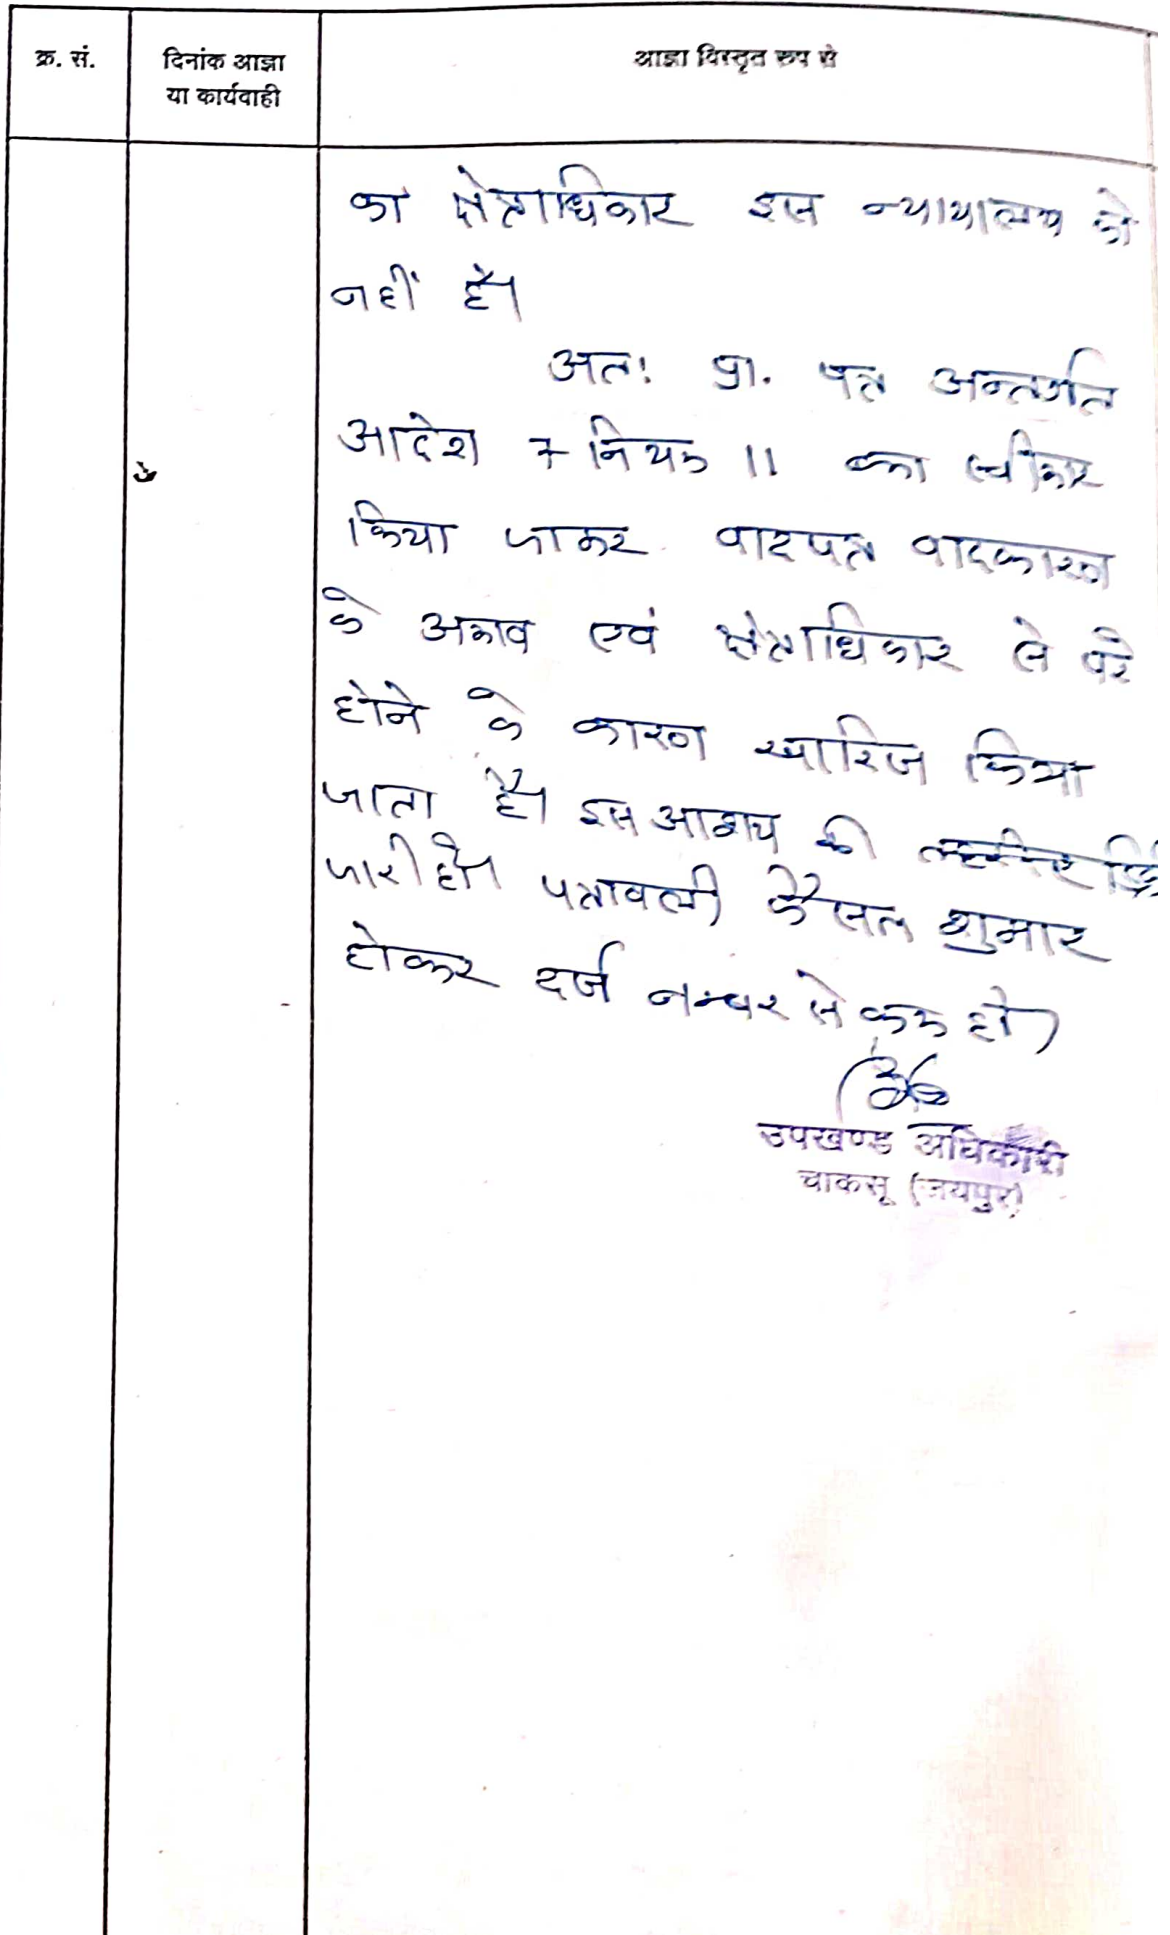 क्र. सं.
दिनांक आज्ञा
या कार्यवाही
आज्ञा विस्तृत रूप से
का क्षेत्राधिकार इस न्यायालय को
नहीं है।
अतः प्रा. पत्र अन्तर्गत
आदेश 7 नियम 11 का स्वीकार
किया जाकर वादपत्र वादकारण
के अभाव एवं क्षेत्राधिकार से परे
होने के कारण खारिज किया
जाता है। इस आशय की
जारी हो। पत्रावली फैसल शुमार
होकर दर्ज नम्बर से कम हो।
उपखण्ड अधिकारी
चाकसू (जयपुर)